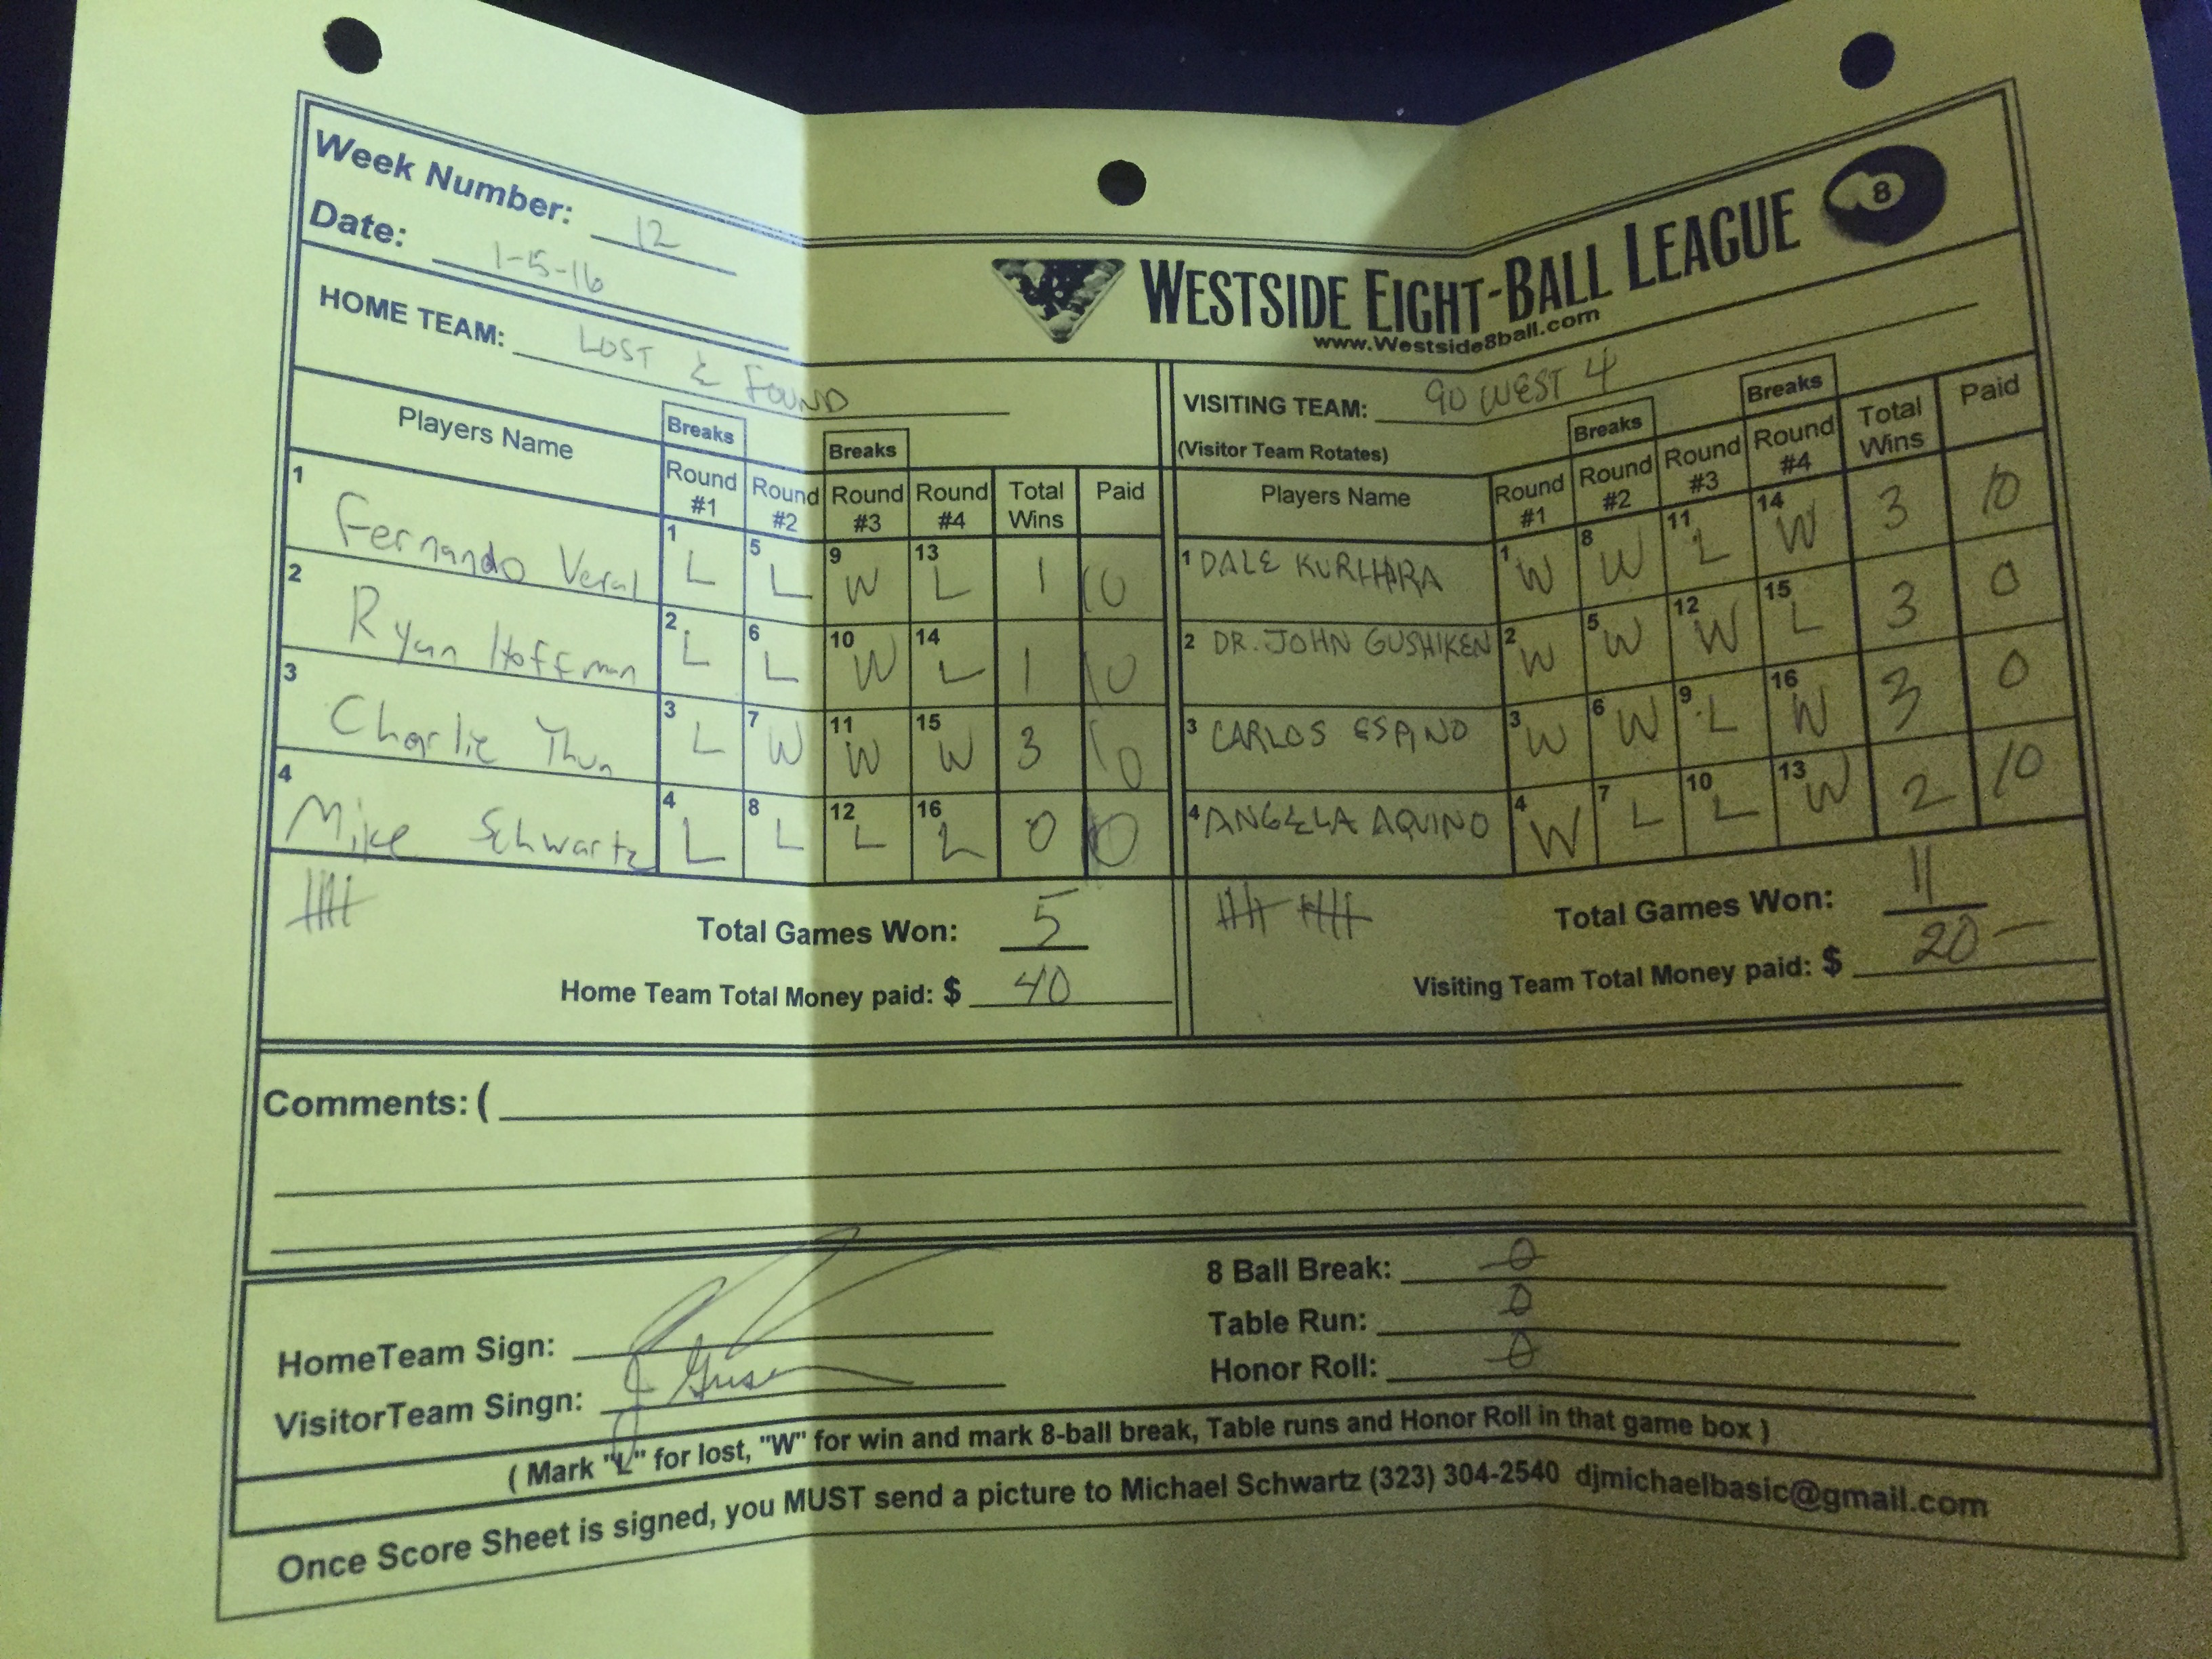 Week Number: 12
Date: 1-5-16
WESTSIDE EIGHT-BALL LEAGUE 8
www.Westside8ball.com
HOME TEAM: LOST & FOUND
VISITING TEAM: GO WEST 4
(Visitor Team Rotates)
Players Name Breaks Round #1 Round #2 Breaks Round #3 Round #4 Total Wins Paid
1 Fernando Veral 1 L 5 L 9 W 13 L 1 10
2 Ryan Hoffman 2 L 6 L 10 W 14 L 1 10
3 Charlie Thun 3 L 7 W 11 W 15 W 3 10
4 Mike Schwartz 4 L 8 L 12 L 16 L 0 10
Total Games Won: 5
Home Team Total Money paid: $ 40
Players Name Round #1 Breaks Round #2 Round #3 Breaks Round #4 Total Wins Paid
1 DALE KURIHARA 1 W 8 W 11 L 14 W 3 10
2 DR. JOHN GUSHIKEN 2 W 5 W 12 W 15 L 3 0
3 CARLOS ESPINO 3 W 6 W 9 L 16 W 3 0
4 ANGELA AQUINO 4 W 7 L 10 L 13 W 2 10
Total Games Won: 11
Visiting Team Total Money paid: $ 20 —
Comments: (
HomeTeam Sign:
VisitorTeam Singn:
8 Ball Break: 0
Table Run: 0
Honor Roll: 0
( Mark "L" for lost, "W" for win and mark 8-ball break, Table runs and Honor Roll in that game box )
Once Score Sheet is signed, you MUST send a picture to Michael Schwartz (323) 304-2540 djmichaelbasic@gmail.com